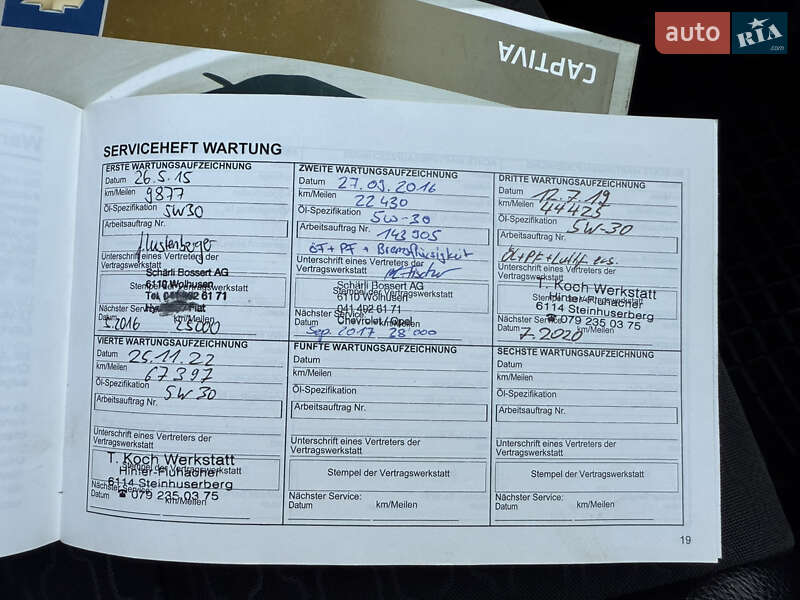 auto RIA.com
CAPTIVA
SERVICEHEFT WARTUNG
ERSTE WARTUNGSAUFZEICHNUNG
Datum 26.5.15
km/Meilen 9877
Öl-Spezifikation 5W30
Arbeitsauftrag Nr.
Unterschrift eines Vertreters der
Vertragswerkstatt
Schärli Bossert AG
6110 Wolhusen
Stempel der Vertragswerkstatt
Tel. 041 492 61 71
Fiat
Nächster Service:
Datum 5.2016 km/Meilen 25000
ZWEITE WARTUNGSAUFZEICHNUNG
Datum 27.09.2016
km/Meilen 22430
Öl-Spezifikation 5W-30
Arbeitsauftrag Nr. 143905
ÖF + PF + Bremsflüssigkeit
Unterschrift eines Vertreters der
Vertragswerkstatt
Schärli Bossert AG
Stempel der Vertragswerkstatt
6110 Wolhusen
041 492 61 71
Nächster Service:
Chevrolet / Opel
Datum Sep. 2017 km/Meilen 28'000
DRITTE WARTUNGSAUFZEICHNUNG
Datum 12.7.19
km/Meilen 44425
Öl-Spezifikation 5W-30
Arbeitsauftrag Nr.
Öl+PF+Luftf ers.
Unterschrift eines Vertreters der
Vertragswerkstatt
T. Koch Werkstatt
Stempel der Vertragswerkstatt
Hinter-Fluhacher
6114 Steinhuserberg
Nächster Service:
☎ 079 235 03 75
Datum 7.2020 km/Meilen
VIERTE WARTUNGSAUFZEICHNUNG
Datum 25.11.22
km/Meilen 67397
Öl-Spezifikation 5W30
Arbeitsauftrag Nr.
Unterschrift eines Vertreters der
Vertragswerkstatt
T. Koch Werkstatt
Stempel der Vertragswerkstatt
Hinter-Fluhacher
6114 Steinhuserberg
Nächster Service:
☎ 079 235 03 75
Datum km/Meilen
FÜNFTE WARTUNGSAUFZEICHNUNG
Datum
km/Meilen
Öl-Spezifikation
Arbeitsauftrag Nr.
Unterschrift eines Vertreters der
Vertragswerkstatt
Stempel der Vertragswerkstatt
Nächster Service:
Datum km/Meilen
SECHSTE WARTUNGSAUFZEICHNUNG
Datum
km/Meilen
Öl-Spezifikation
Arbeitsauftrag Nr.
Unterschrift eines Vertreters der
Vertragswerkstatt
Stempel der Vertragswerkstatt
Nächster Service:
Datum km/Meilen
19